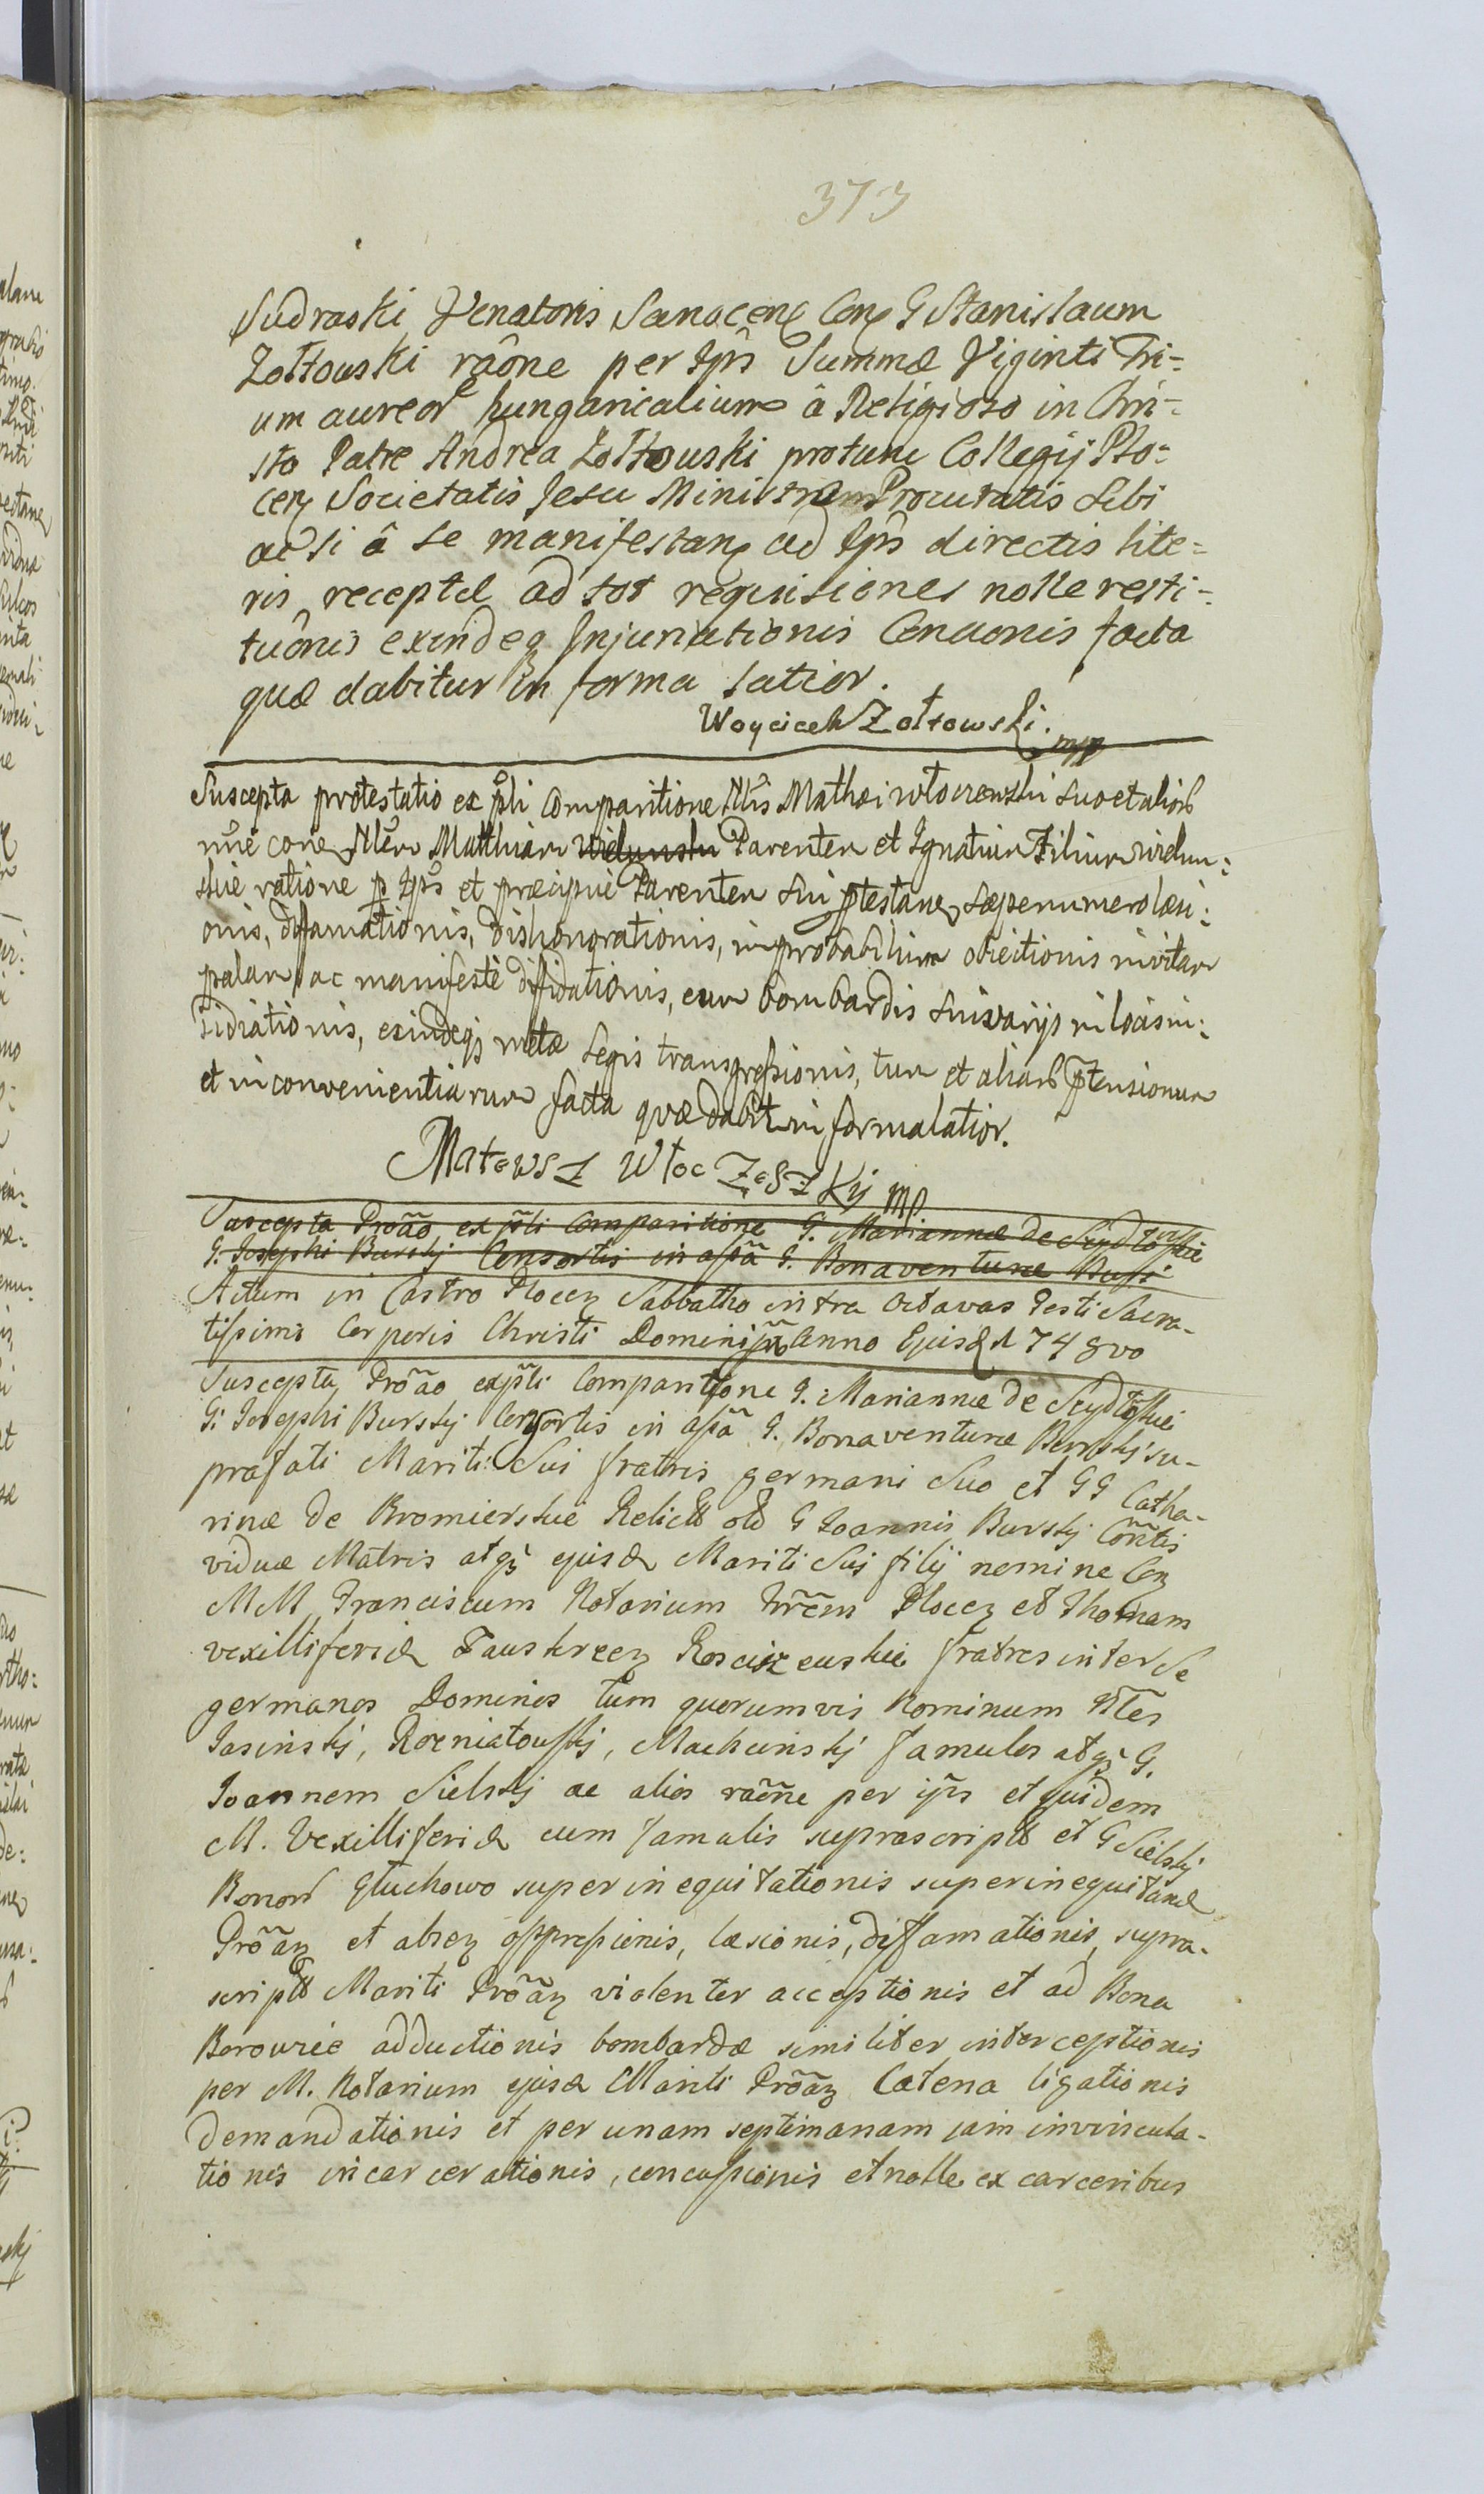 373
Sudraski Venatoris Sanocen Con G Stanislaum
Zołtowski rãone per Ips Summæ Viginti Tri-
um aureor hungaricalium â Religioso in Chri-
sto Patre Andrea Zołtouski protunc Collegij Plo-
cen Societatis Jesu Procuratis Sibi
ac si â se manifestan ad Ips directis lite-
ris receptæ ad tot requisiones nolle resti-
tuônis exindeq Injuriationis facta
quæ dabitur in forma latior.
Woyciech Zołtowski. mpp
Suscepta protestatio ex pñti Comparitione Nlis Mathæi suo et alior
nñe con Matthiam Wielunski Parentem et Ignatium Filium wielun:
skie ratione p Ips et præcipue Parentem sui ptestan sæpenumero læsi:
onis, diffamationis, dishonorationis, improbabilium obiectionis invitam
palam ac manifestè diffidationis, cum bombardis suis varijs in locis in:
sidiationis, exindeq metæ legis transgressionis, tum et aliar ptensionum
et inconvenientiarum facta quæ dabit in forma latior.
Matewsz Włoczeszkij mp
Suscepta Prõao ex pñti Comparitione G. Mariannæ de Szydłosckie
G. Josephi Burskj Consortis in G. Bonaventuræ Busi
Actum in Castro Plocen Sabbatho intra Octavas Festi Sacra-
tissimi Corporis Christi Domini Anno Ejusd 1748vo
Suscepta Prõao ex pñti Comparitione G. Mariannæ de Szydłoskie
G. Josephi Burskj Consortis in G. Bonaventuræ Burskj su-
prafati Mariti Sui fratris germani Suo et GG Catha-
rinæ de Bromierskie Relictæ olî G Joannis Burskj Cõntis
viduæ Matris atqz ejusd Mariti Sui filij nomine Con
MM Franciscum Notarium Plocen et Thomam
vexilliferid Rosciszeuskie fratres inter se
germanos Dominos tum quorumvis Nominum Nles
Jasinskj, Rozniatouskj, Machcinskj famulos atqz G.
Joannem Sielskj ac alios raõne per ips et quidem
M. Vexilliferid cum famulis suprascriptis et G Sielskj
Bonor Głuchowo superinequitationis superinequitand
Prõan et alien oppressionis, læsionis, diffamationis, supra-
scripti Mariti Prõan violenter acceptionis et ad Bona
Borowice adductionis bombardæ similiter interceptionis
per M. Notarium ejusd Mariti Prõan Catena ligationis
demandationis et per unam septimanam jam invincula-
tionis incarcerationis, concussionis et nolle ex carceribus